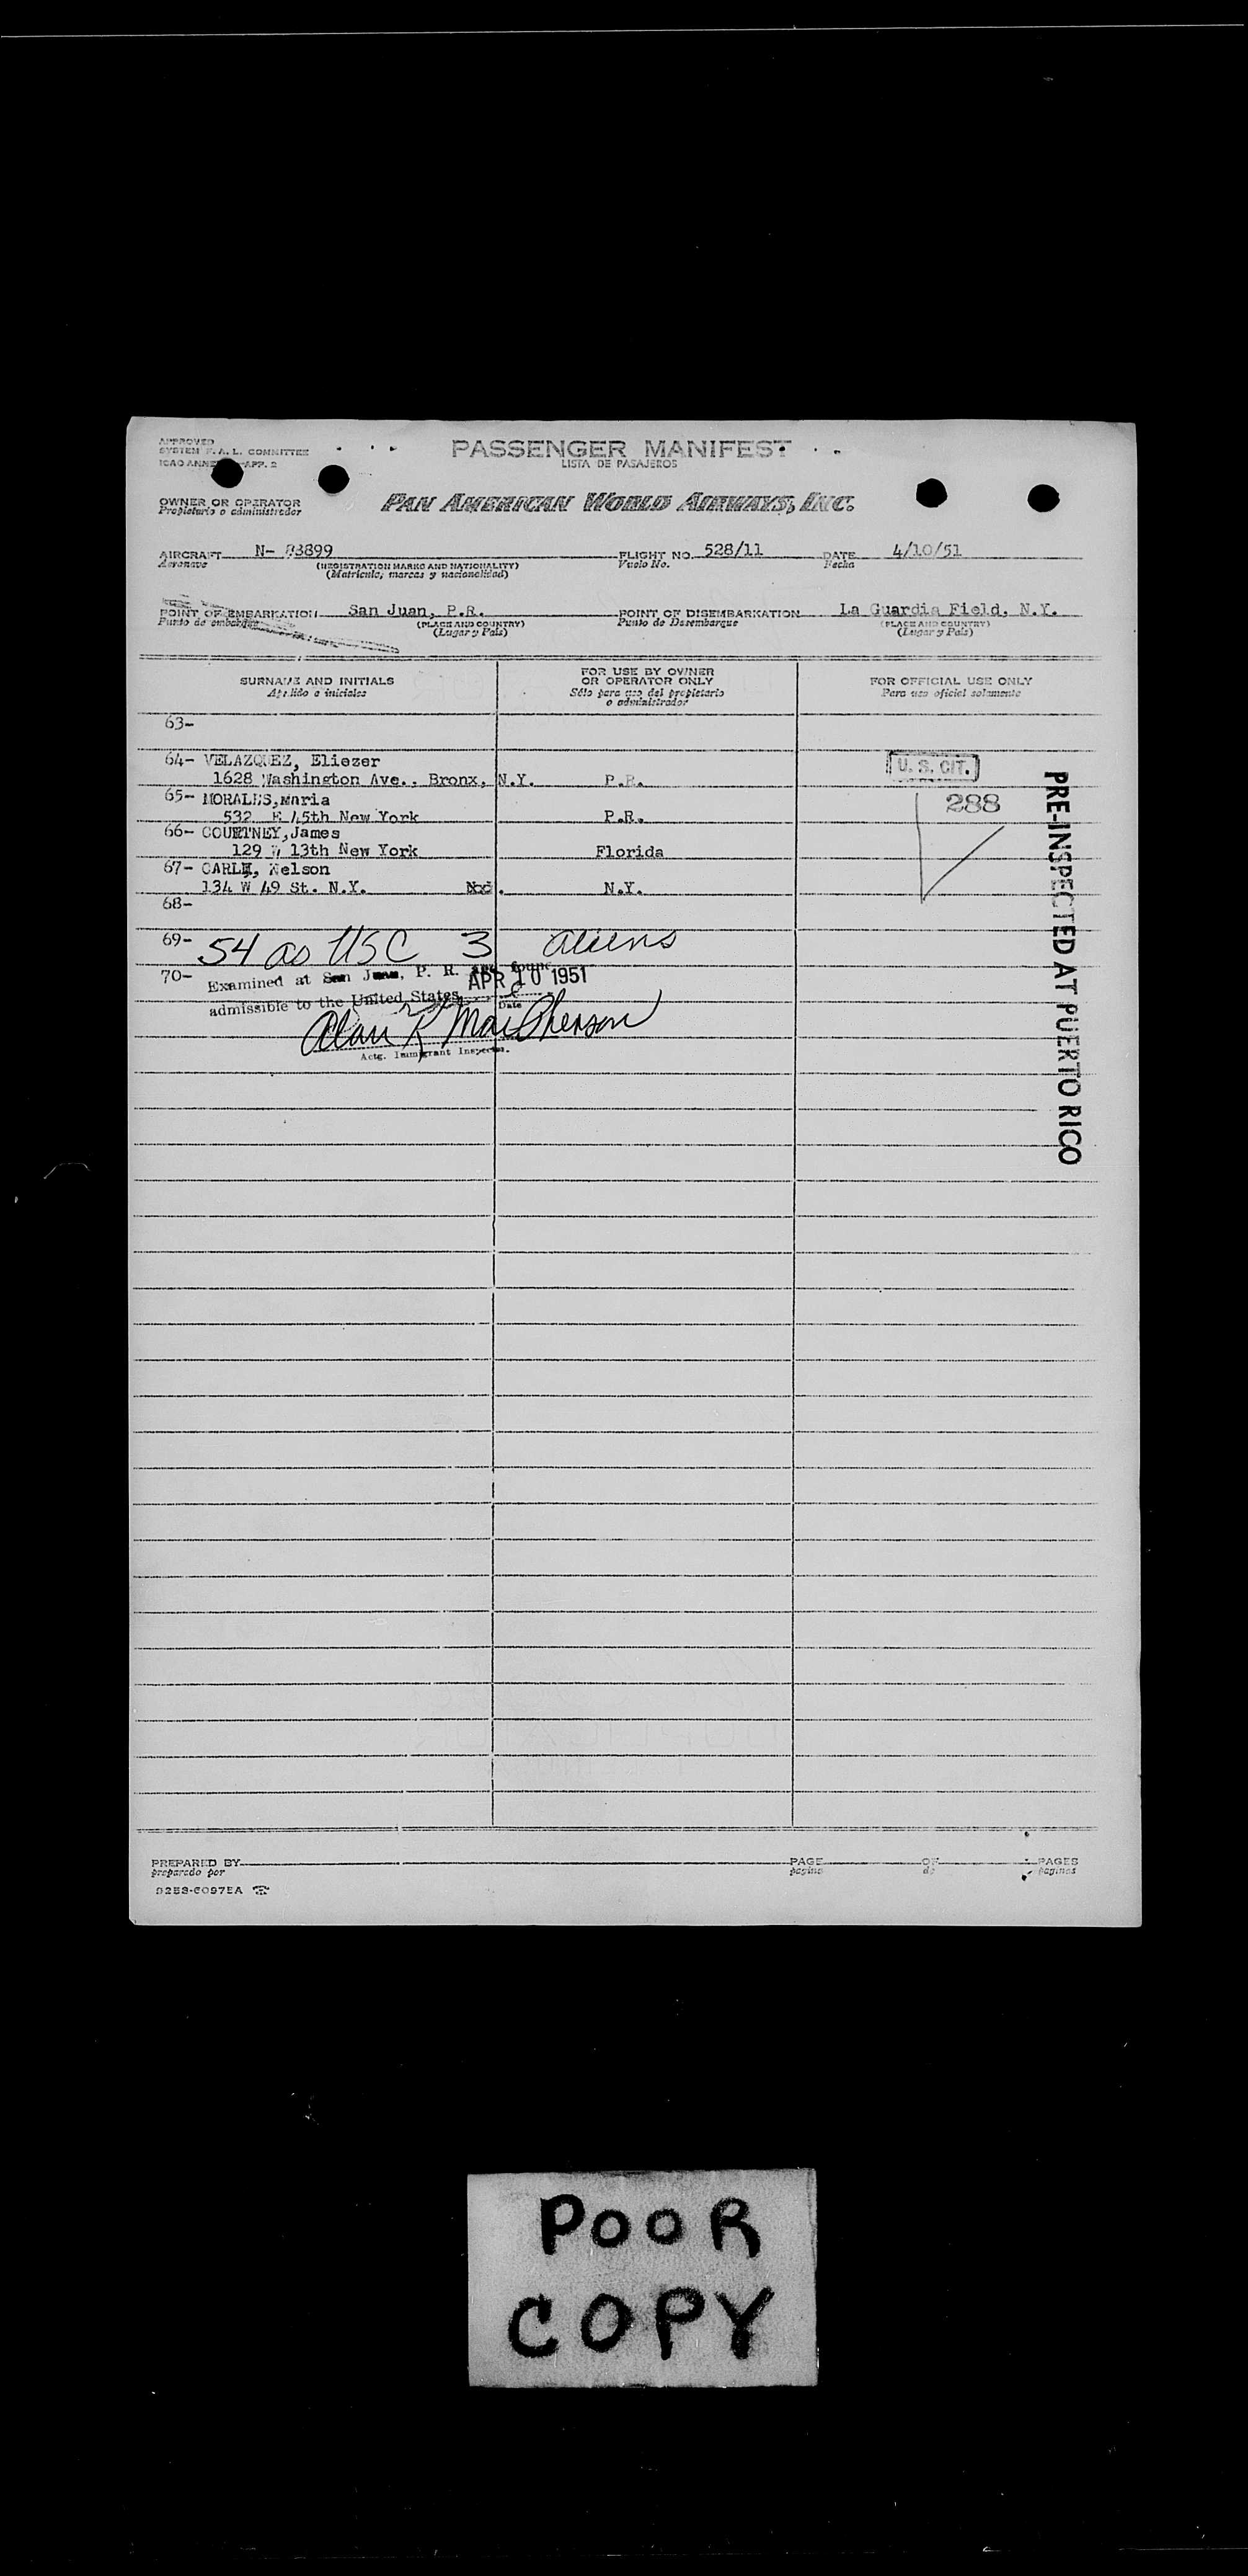 APPROVED
SYSTEM F. A. L. COMMITTEE
ICAO ANNE APP. 2
PASSENGER MANIFEST
LISTA DE PASAJEROS
OWNER OR OPERATOR
Propietario o administrador
PAN AMERICAN WORLD AIRWAYS, INC.
AIRCRAFT N- 3899 FLIGHT NO. 528/11 DATE 4/10/51
Aeronave (REGISTRATION MARKS AND NATIONALITY) Vuelo No. Fecha
(Matrícula, marcas y nacionalidad)
POINT OF EMBARKATION San Juan, P.R. POINT OF DISEMBARKATION La Guardia Field, N.Y.
Punto de embarque (PLACE AND COUNTRY) Punto de Desembarque (PLACE AND COUNTRY)
(Lugar y País) (Lugar y País)
SURNAME AND INITIALS
Apellido e iniciales
FOR USE BY OWNER
OR OPERATOR ONLY
Sólo para uso del propietario
o administrador
FOR OFFICIAL USE ONLY
Para uso oficial solamente
63-
64- VELAZQUEZ, Eliezer U. S. CIT.
1628 Washington Ave., Bronx, N.Y. P.R.
65- MORALES,Maria 288
532 E 45th New York P.R.
66- COURTNEY,James
129 W 13th New York Florida
67- CARLE, Nelson
134 W 49 St. N.Y. N.Y.
68-
69- 54 as USC 3 aliens
70- Examined at San Juan, P. R. and found
APR 10 1951
admissible to the United States
Date
Alan R MacPherson
Actg. Immigrant Inspector.
PRE-INSPECTED AT PUERTO RICO
PREPARED BY PAGE OF PAGES
preparado por página de páginas
POOR
COPY